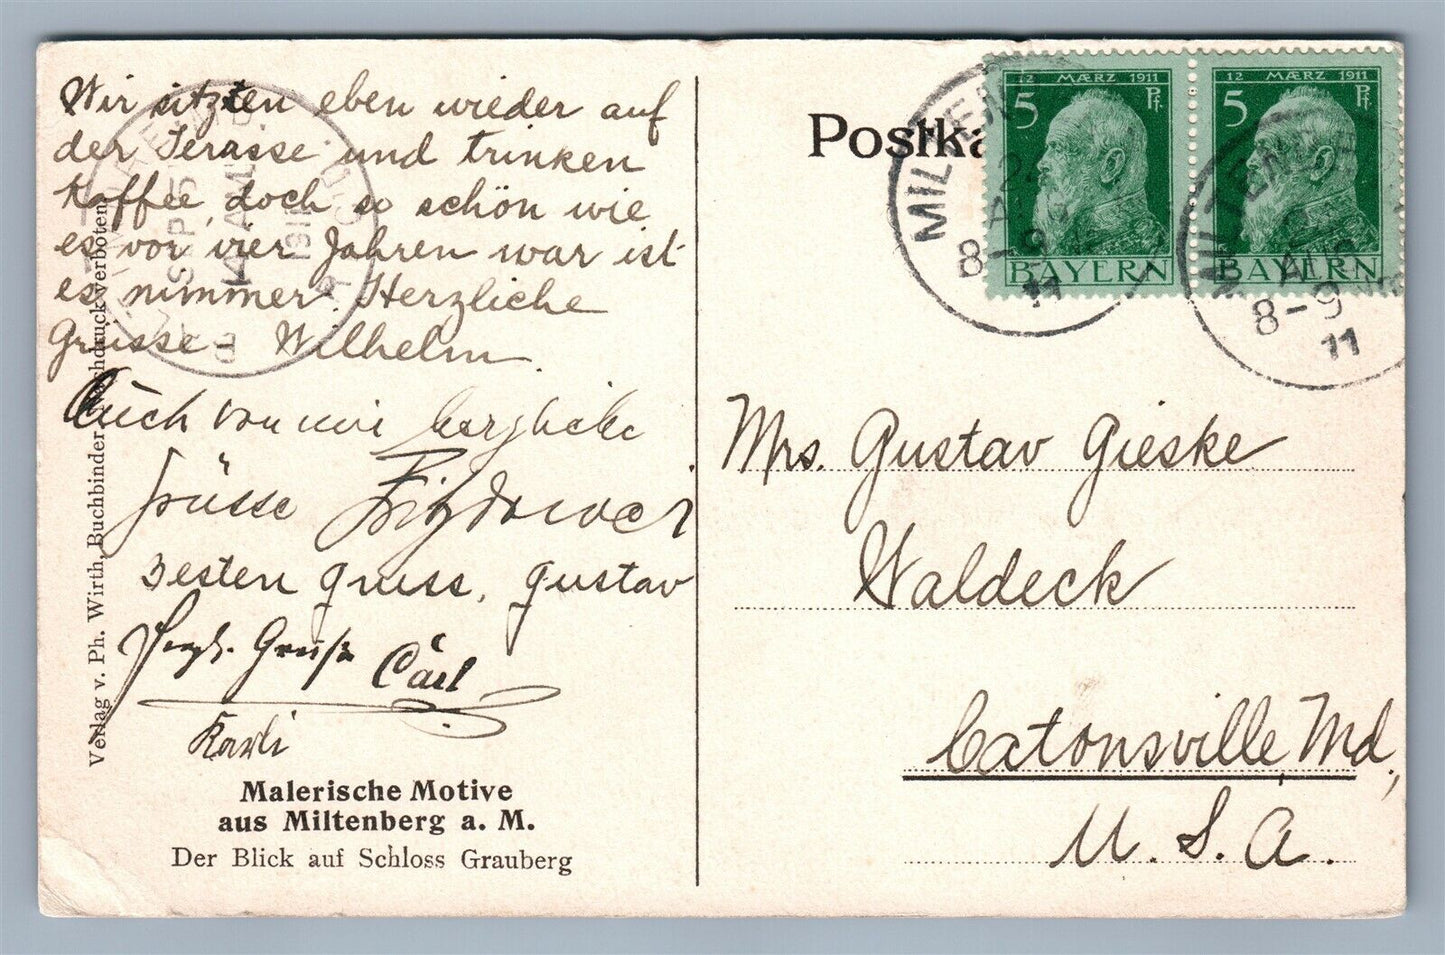 Wir sitzten eben wieder auf
der Terasse und trinken
Kaffee, doch so schön wie
es vor vier Jahren war ist
es nimmer. Herzliche
Grüsse. Wilhelm.
Auch von mir herzliche
Grüsse
Besten Gruss, Gustav
Herzl. Gruß Carl
Karli
Malerische Motive
aus Miltenberg a. M.
Der Blick auf Schloss Grauberg
Verlag v. Ph. Wirth, Buchbinder Nachdruck verboten.
SEP 5
AM
1911
Postka
12 MÆRZ 1911
5 Pf.
BAYERN
12 MÆRZ 1911
5 Pf.
BAYERN
MILTENBERG
24
AUG
8-9
11
MILTENBERG
AUG
8-9
11
Mrs. Gustav Gieske
Waldeck
Catonsville, Md,
U. S. A.